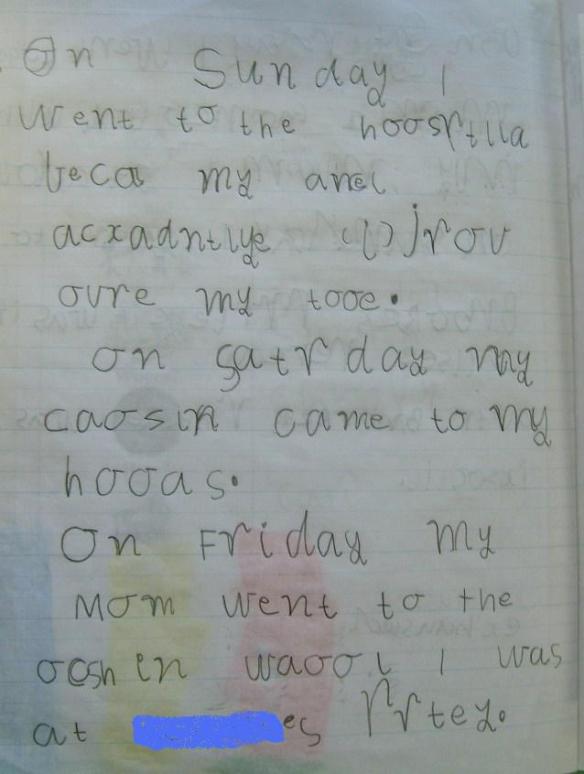 On Sunday I
went to the hoosptlla
beca my ancl
acxadntlye jrov
ovre my tooe.
on satrday my
caosin came to my
hooas.
On Friday my
Mom went to the
ooshin waool I was
at es Prtey.